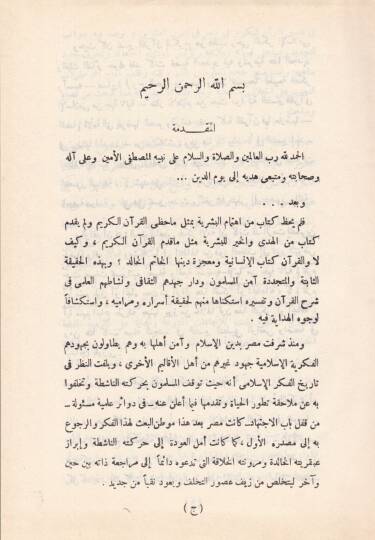 بسم الله الرحمن الرحيم
المقدمة
الحمد لله رب العالمين والصلاة والسلام على نبيه المصطفى الأمين وعلى آله
وصحابته ومتبعى هديه إلى يوم الدين ...
وبعد ...
فلم يحظ كتاب من اهتمام البشرية بمثل ماحظى القرآن الكريم ولم يقدم
كتاب من الهدى والخير للبشرية مثل ماقدم القرآن الكريم ، وكيف
لا والقرآن كتاب الإنسانية ومعجزة دينها الخاتم الخالد ؛ وبهذه الحقيقة
الثابتة والمتجددة آمن المسلمون ودار جهدهم الثقافى ونشاطهم العلمى فى
شرح القرآن وتفسيره استكناها منهم لحقيقة أسراره ومراميه ، واستكشافاً
لوجوه الهداية فيه .
ومنذ شرفت مصر بدين الإسلام وآمن أهلها به وهم يطاولون بجهودهم
الفكرية الإسلامية جهود غيرهم من أهل الأقاليم الأخرى ، ويلفت النظر فى
تاريخ الفكر الإسلامى أنه حيث توقف المسلمون بحركته الناشطة وتخلفوا
به عن ملاحقة تطور الحياة وتقدمها فيما أعلن عنه ــ فى دوائر علمية مسئولة ــ
من قفل باب الاجتهاد ــ كانت مصر بعد هذا موطن البعث لهذا الفكر والرجوع
به إلى مصدره الأول ، كما كانت أمل العودة إلى حركته الناشطة وإبراز
عبقريته الخالدة ومرونته الخلاقة التى تدعوه دائماً إلى مراجعة ذاته بين حين
وآخر ليتخلص من زيف عصور التخلف ويعود نقياً من جديد .
( ج )